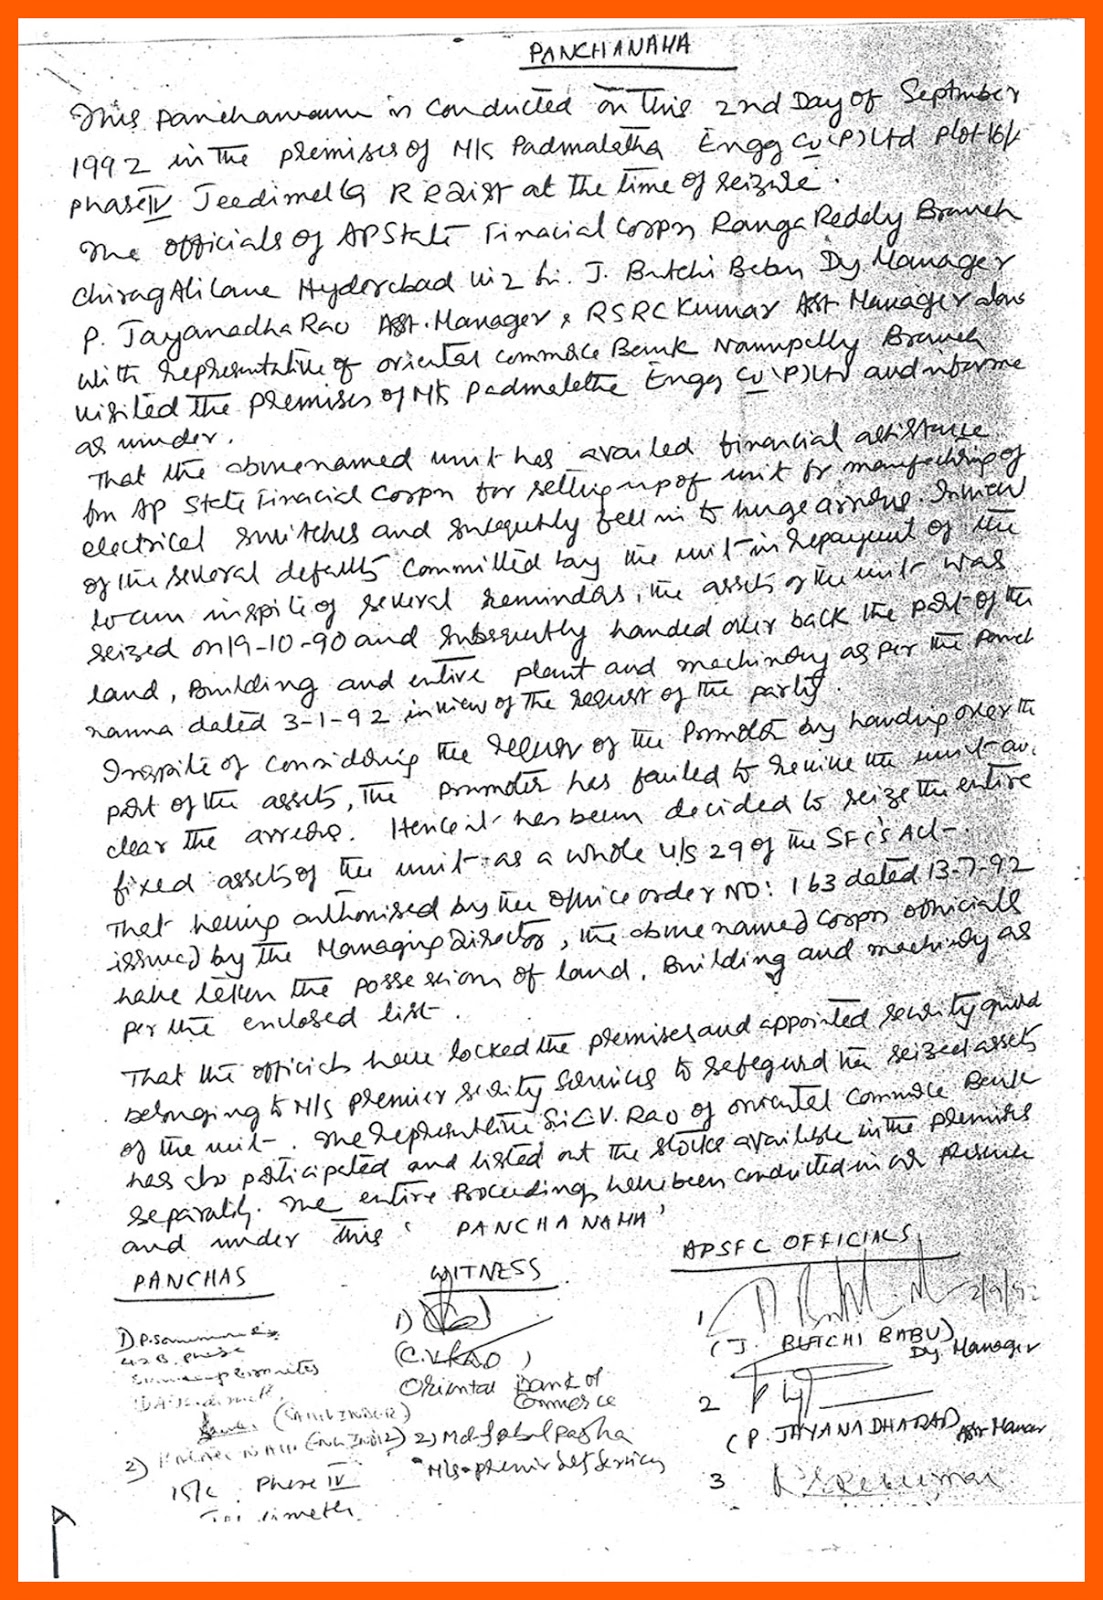 PANCHANAMA
This panchanama is conducted on this 2nd Day of September
1992 in the premises of M/s Padmalatha Engg Co (P) Ltd plot 16/
phase IV Jeedimetla R R Dist at the time of seizure.
The officials of AP State Finacial Corpn Ranga Reddy Branch
Chirag Ali Lane Hyderabad viz Sri. J. Butchi Babu Dy Manager
P. Jayanadha Rao Asst. Manager & RSRC Kumar Asst Manager along
with representative of oriental commerce Bank Nampally Branch
visited the premises of M/s Padmalatha Engg Co (P) Ltd and informe
as under.
That the abovenamed unit has availed financial assistance
from AP State Finacial Corpn for setting up of unit for manufacturing of
electrical switches and subsequently fell in to huge arrears. In view
of the several defaults committed by the unit in repayment of the
loan inspite of several reminders, the assets of the unit was
seized on 19-10-90 and subsequently handed over back the part of the
land, Building and entire plant and machinery as per the Panch
nama dated 3-1-92 in view of the request of the party.
Inspite of considering the request of the Promoter by handing over the
part of the assets, the promoter has failed to revive the unit an
clear the arrears. Hence it has been decided to seize the entire
fixed assets of the unit as a whole u/s 29 of the SFC's Act.
That having authorised by the office order NO: 163 dated 13-7-92
issued by the Managing Director, the above named Corpn officials
have taken the possession of land, Building and machinery as
per the enclosed list.
That the officials have locked the premises and appointed security guard
belonging to M/s premier security services to safeguard the seized assets
of the unit. The representative Sri C.V. Rao of oriental Commerce Bank
has also participated and listed out the stocks available in the premises
separately. The entire Proceedings have been conducted in our presence
and under this 'PANCHANAMA'
PANCHAS
WITNESS
APSFC OFFICIALS
1)
42B, Phase
2)
15/c Phase IV
1)
(C.V. RAO)
Oriental Bank of
Commerce
2) Md. Pasha
M/s premier Services
1 2/9/92
(J. BUTCHI BABU)
Dy Manager
2
(P. JAYANADHARAO) Asst Manager
3